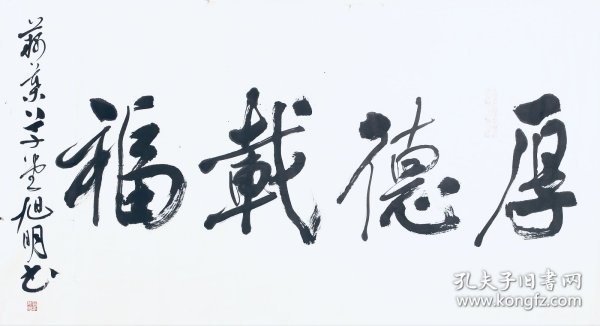 厚德載福
草堂旭明书
孔夫子旧书网
www.kongfz.com